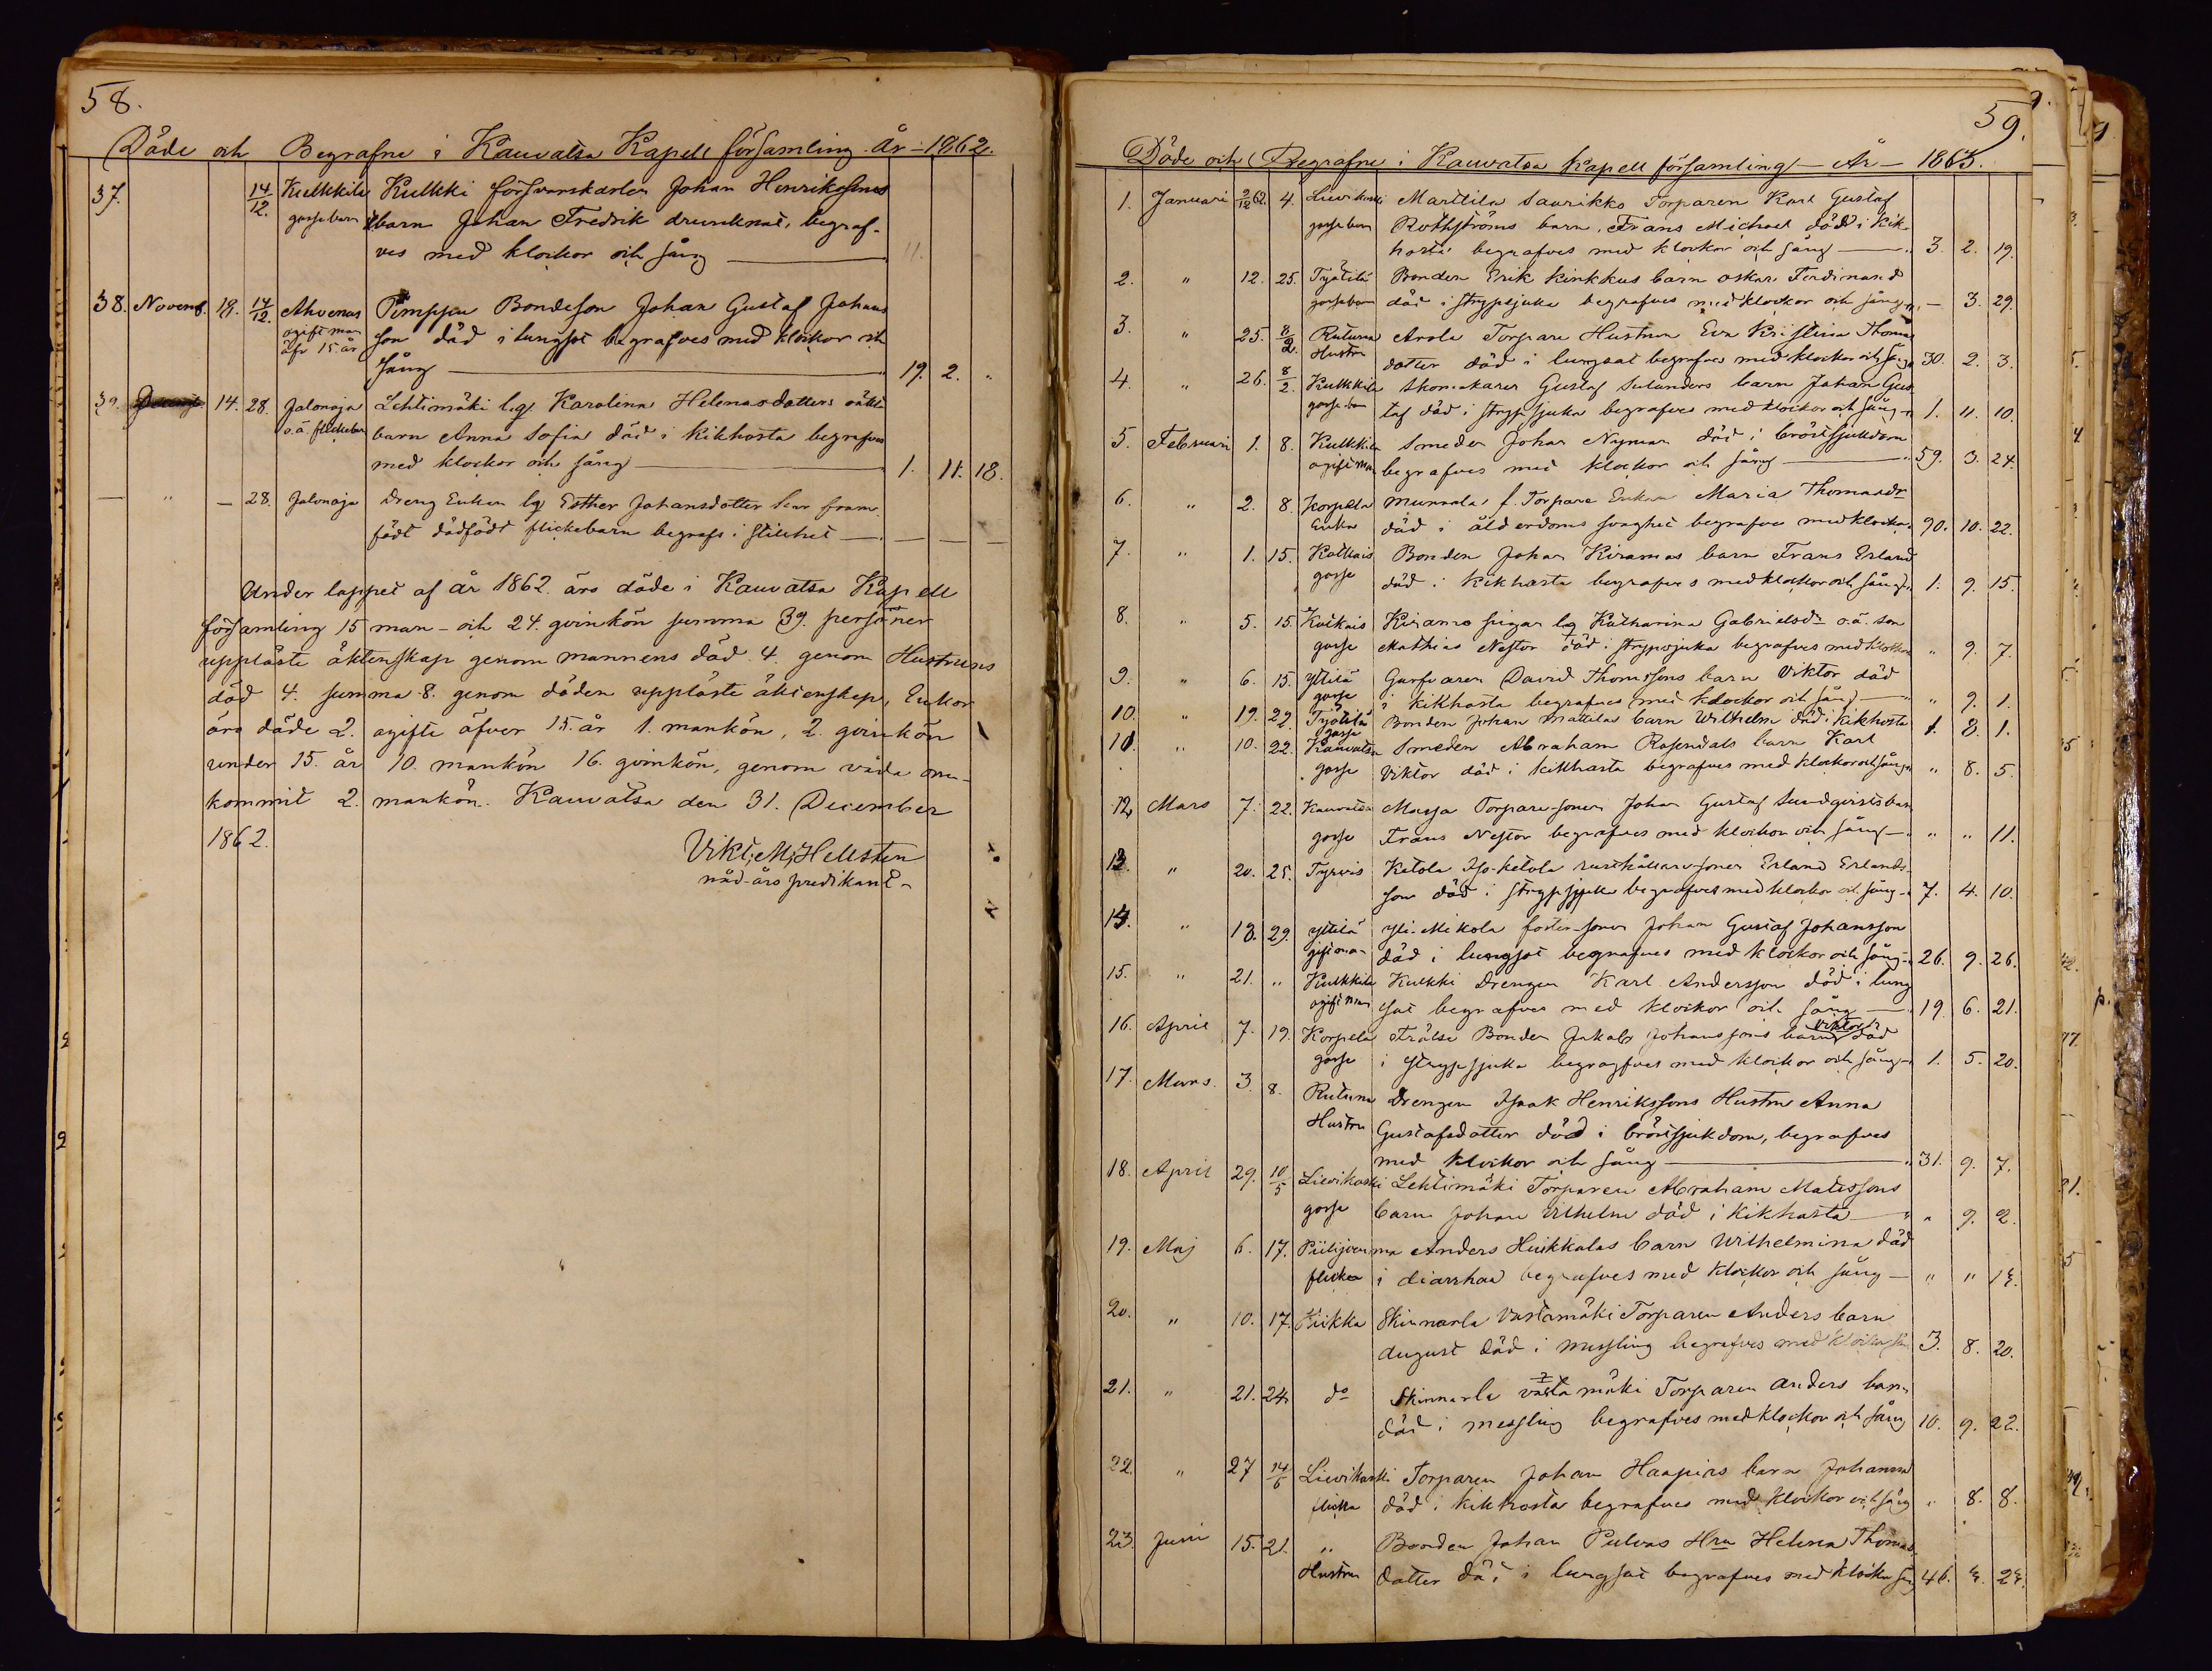 58.
Döde och Begrafne i Kauvatsa Kapell församling År - 1862.
37. 14/12. Kulkkila Kulkki försvarskarlen Johan Henrikssons
gossebarn barn Johan Fredrik drunknat, begraf-
ves med klockor och sång — 11.
38. Novemb. 18. 14/12. Ahvenus Pimppu Bondeson Johan Gustaf Johans
ogift man son död i lungsot begrafves med klockor och
öfr 15 år sång — 19. 2. "
39. 14. 28. Jalonoja Lehtimäki lg. Karolina Helenasdotters oäkta
o.ä. flickebn barn Anna Sofia död i kikhosta begrafves
med klockor och sång — 1. 11. 18.
— " — 28. Jalonoja Dreng Enkan lg Esther Johansdotter har fram
födt dödfödt flickebarn begrafs i stillhet — — — —
Under loppet af år 1862. äro döde i Kauvatsa Kapell
församling 15 man- och 24. qvinkön summa 39. personer
upplöste äktenskap genom mannens död 4. genom Hustruns
död 4. summa 8. genom döden upplöste äktenskap, Enkor
äro döde 2. ogifte öfver 15. år 1. mankön, 2. qvinkön
under 15. år 10. mankön 16. qvinkön, genom våda om-
kommit 2. mankön. Kauvatsa den 31. December
1862.
Vikt; M; Hellsten
nåd-års predikant
59.
Döde och Begrafne i Kauvatsa Kapell församling - År - 1863.
1. Januari 2/12 62. 4. Lievikoski Marttila Saurikko Torparen Karl Gustaf
gossebarn Rothströms barn, Frans Michael död i kik-
hosta begrafves med klockor och sång — 3. 2. 19.
2. " 12. 25. Työtilä Bonden Erik Kinkkus barn Oskar Ferdinand
gossebarn död i strypsjuka begrafves med klockor och sång " — 3. 29.
3. " 25. 8/2. Rutuna Arola Torpare Hustrun Eva Kristina Thomas
Hustru dotter död i lungsot begrafves med klockor och sång 30. 2. 3.
4. " 26. 8/2. Kulkkila Skomakaren Gustaf Sulanders barn Johan Gus
gossebarn taf död i strypsjuka begrafves med klockor och sång 1. 11. 10.
5. Februari 1. 8. Kulkkila Smeden Johan Nyman död i bröstsjukdom
ogift man begrafves med klockor och sång — 59. 3. 24.
6. " 2. 8. Korpela Munnola f. Torpare Enkan Maria Thomasdr
Enka död i ålderdoms svaghet begrafves med klockor 90. 10. 22.
7. " 1. 15. Kotkais Bonden Johan Kiramos barn Frans Erland
gosse död i kikhosta begrafves med klockor och sång 1. 9. 15.
8. " 5. 15. Kotkais Kiramo pigan lg Katharina Gabrielsdr o.ä. son
gosse Mathias Nestor död i strypsjuka begrafves med klockor " 9. 7.
9. " 6. 15. Yttilä Garfvaren David Thomssons barn Viktor död
gosse i kikhosta begrafves med klockor och sång — " 9. 1.
10. " 19. 22. Työtilä Bonden Johan Mattilas barn Wilhelm död i kikhosta 1. 8. 1.
gosse
11. " 10. 22. Kauvatsa Smeden Abraham Rosendals barn Karl
gosse Viktor död i kikhosta begrafves med klockor och sång " 8. 5.
12. Mars 7. 22. Kauvatsa Massa Torpare-sonen Johan Gustaf Lundqvists barn
gosse Frans Nestor begrafves med klockor och sång — " " 11.
13. " 20. 25. Tyrvis Ketola Iso-ketola rusthållare-sonen Erland Erlands
son död i strypsjuka begrafves med klockor och sång 7. 4. 10.
14. " 18. 29. Yttilä Yli-Mikola foster-sonen Johan Gustaf Johansson
gift man död i lungsot begrafves med klockor och sång 26. 9. 26.
15. " 21. " Kulkkila Kulkki Drengen Karl Andersson död i lung
ogift man sot begrafves med klockor och sång — 19. 6. 21.
16. April 7. 19. Korpela Frälse Bonden Jakob Johanssons barn Viktor död
gosse i strypsjuka begrafves med klockor och sång 1. 5. 20.
17. Mars. 3. 8. Rutuna Drengen Isaak Henrikssons Hustru Anna
Hustru Gustafsdotter död i bröstsjukdom, begrafves
med klockor och sång — 31. 9. 7.
18. April 29. 10/5 Lievikoski Lehtimäki Torparen Abraham Matssons
gosse barn Johan Vilhelm död i kikhosta — " 9. 2.
19. Maj 6. 17. Piilijoen ma Anders Huikkalas barn Wilhelmina död
flicka i diarrhae begrafves med klockor och sång — " " 14.
20. " 10. 17. Kiikka Skinnarla Vastamäki Torparen Anders barn
August död i messling begrafves med klockor sån 3. 8. 20.
21. " 21. 24. do Skinnarla Vastamäki Torparen Anders barn
död i messling begrafves med klockor och sång 10. 9. 22.
22. " 27 14/6 Lievikoski Torparen Johan Haapios barn Johanna
flicka död i kikhosta begrafves med klockor och sång " 8. 8.
23. Juni 15. 21. " Bonden Johan Pulvas Hru Helena Thomas
Hustru dotter död i lungsot begrafves med klockor sång 46. 4. 24.